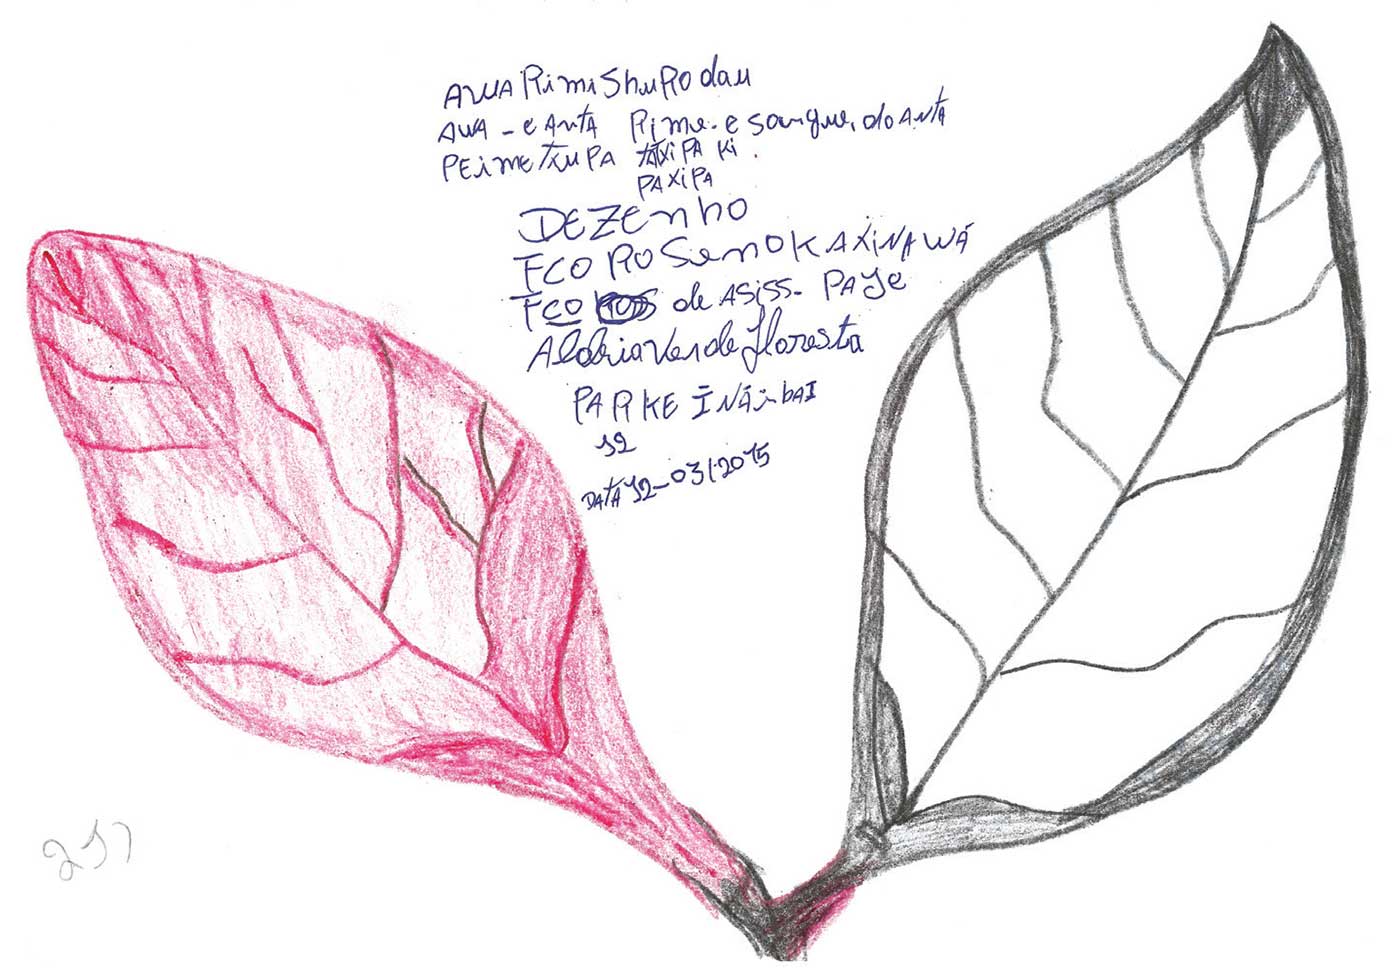 AWA Rimi ShuRO dau
AWA - e AntA Rime - e sangue, do AntA
PEimE TXUPA tAtXiPA Ki
PAXiPA
DEZEnhO
FCO ROSenO KAXiNAWÁ
FCO de ASiSS - PAJe
Aldeia Verde floresta
PARKE ĪNÃibAI
12
DATA 12-03/2015
217